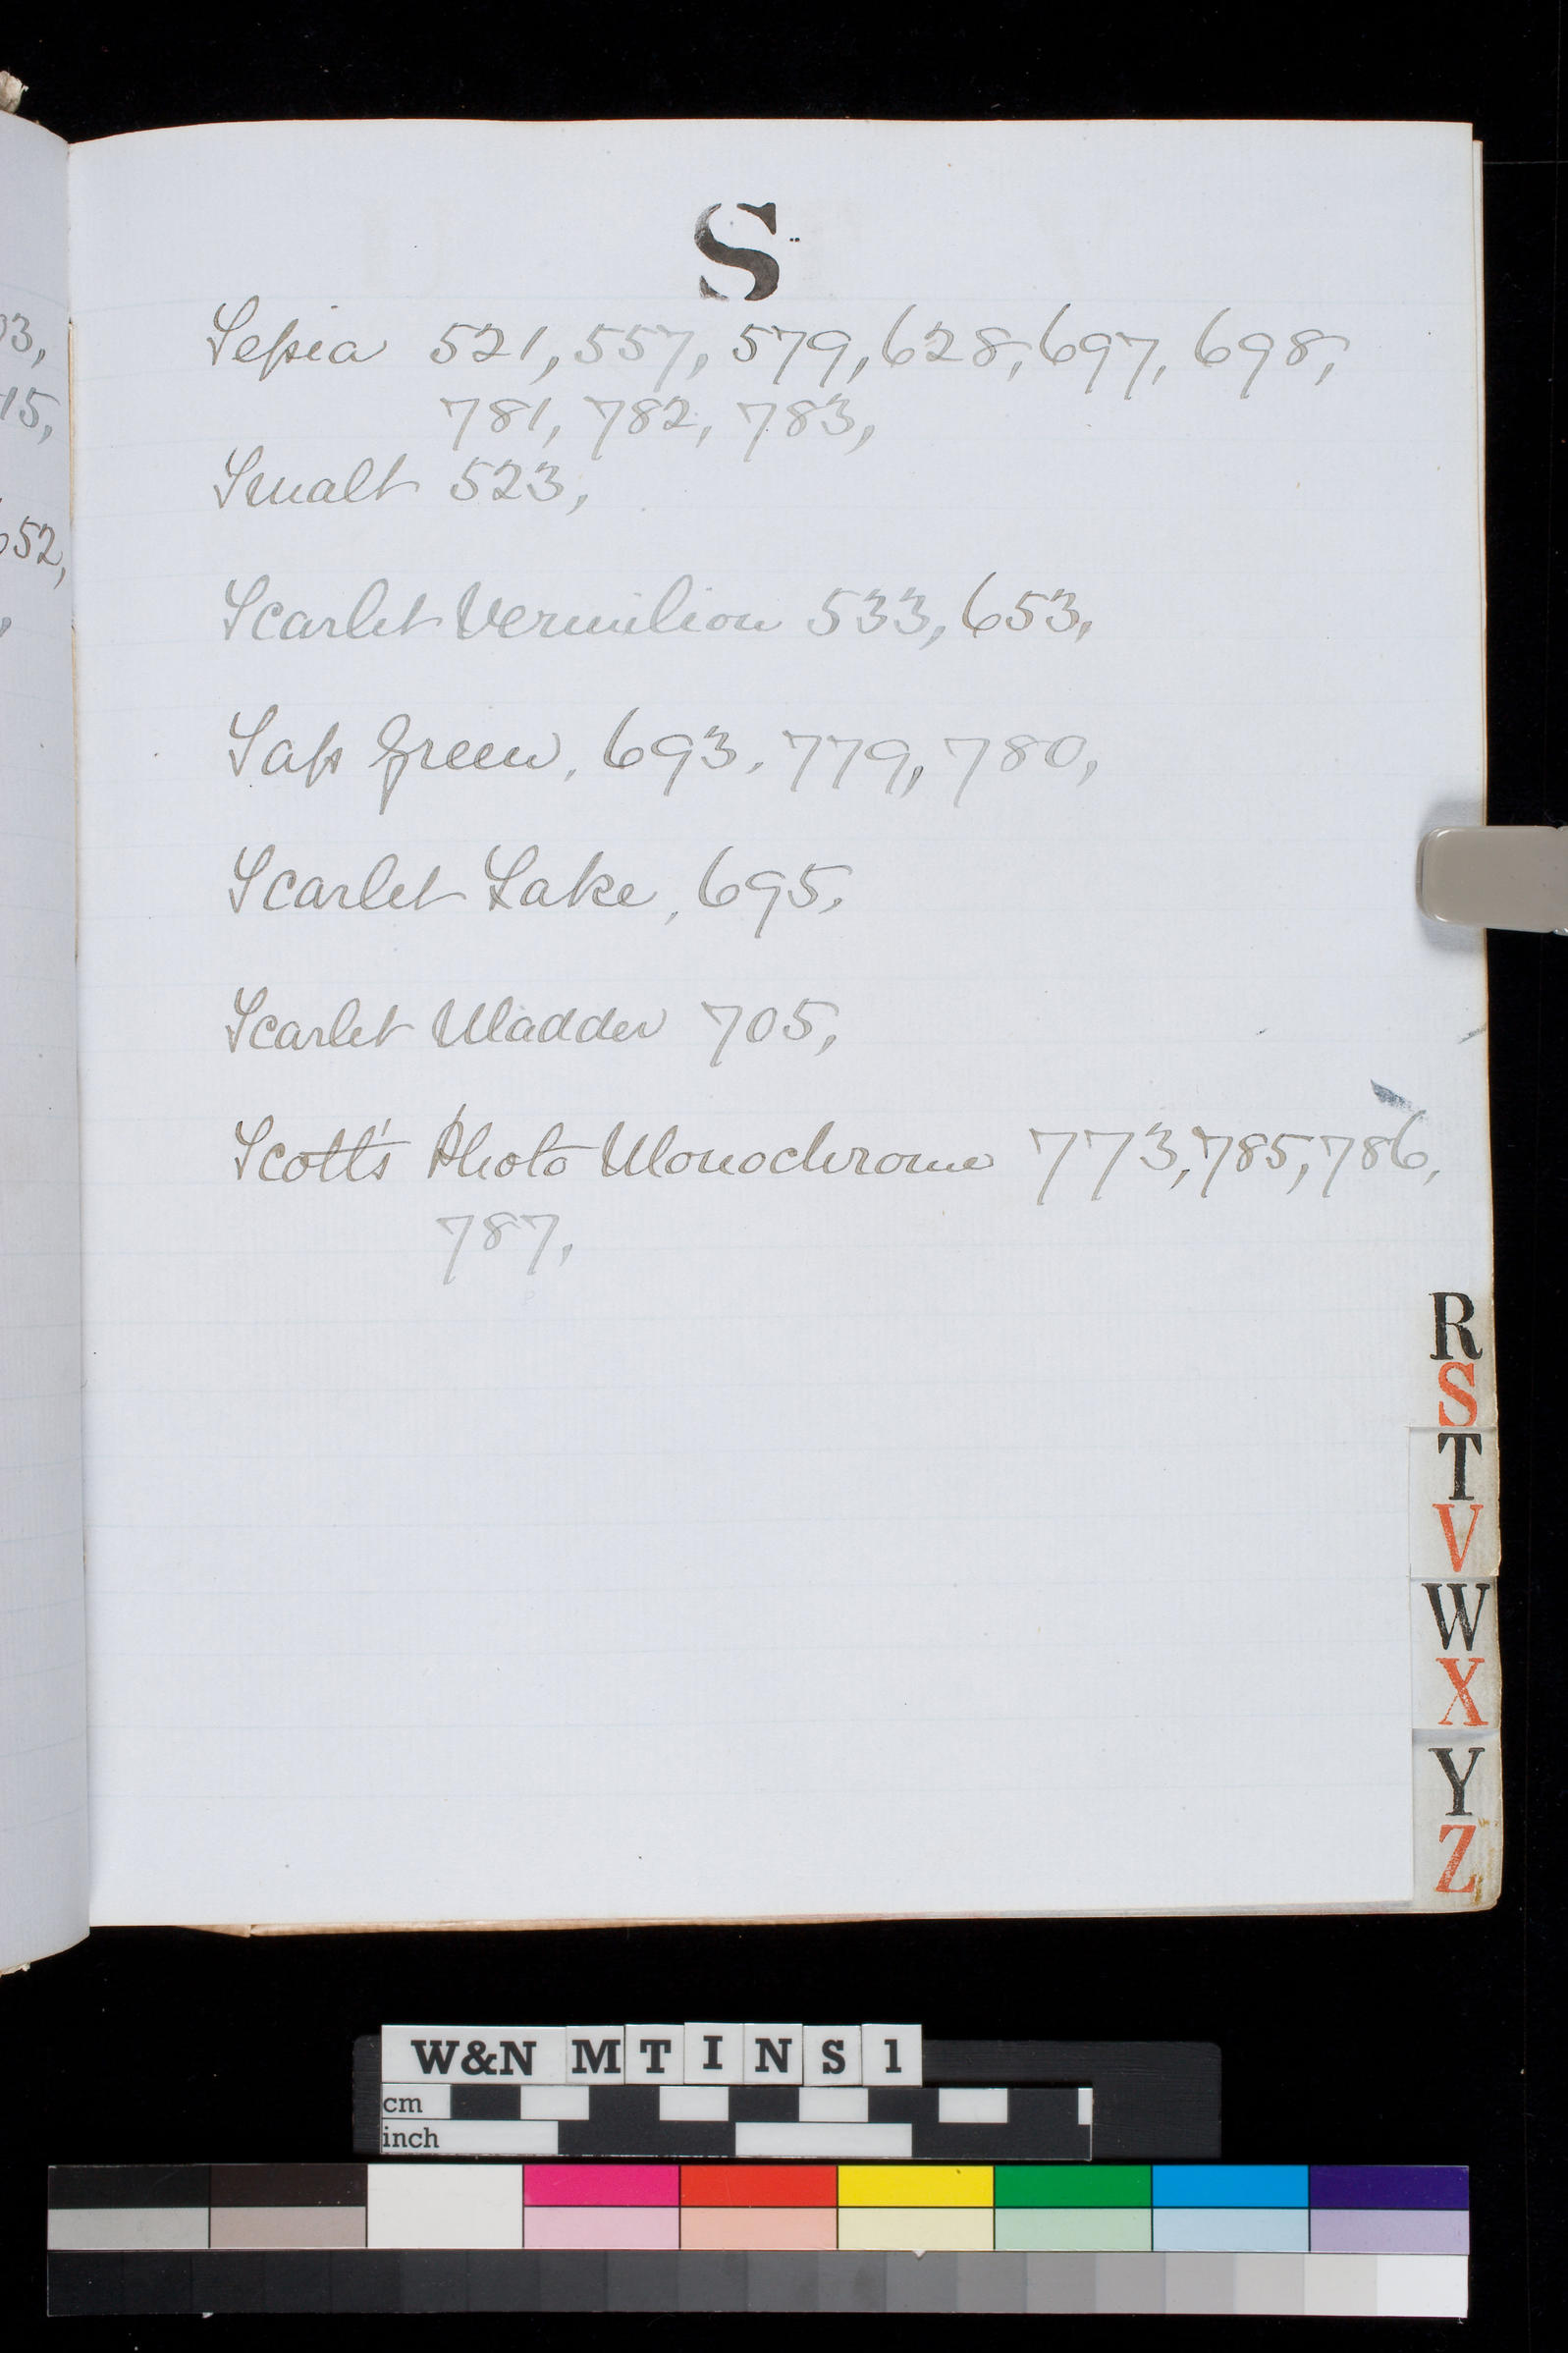 S
Sepia 521, 557, 579, 628, 697, 698,
781, 782, 783,
Smalt 523,
Scarlet Vermilion 533, 653,
Sap Green, 693, 779, 780,
Scarlet Lake, 695,
Scarlet Madder 705,
Scott's Photo Monochrome 773, 785, 786,
787,
3,
15,
652,
R
S
T
V
W
X
Y
Z
W&N MTINS1
cm
inch